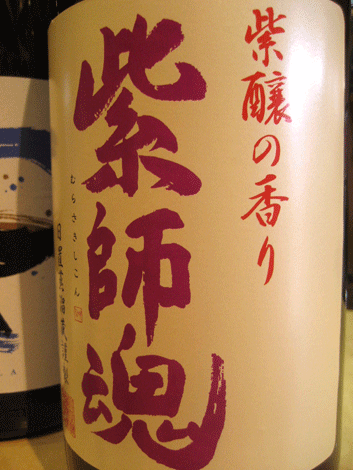 紫醸の香り
紫師魂
むらさきしこん